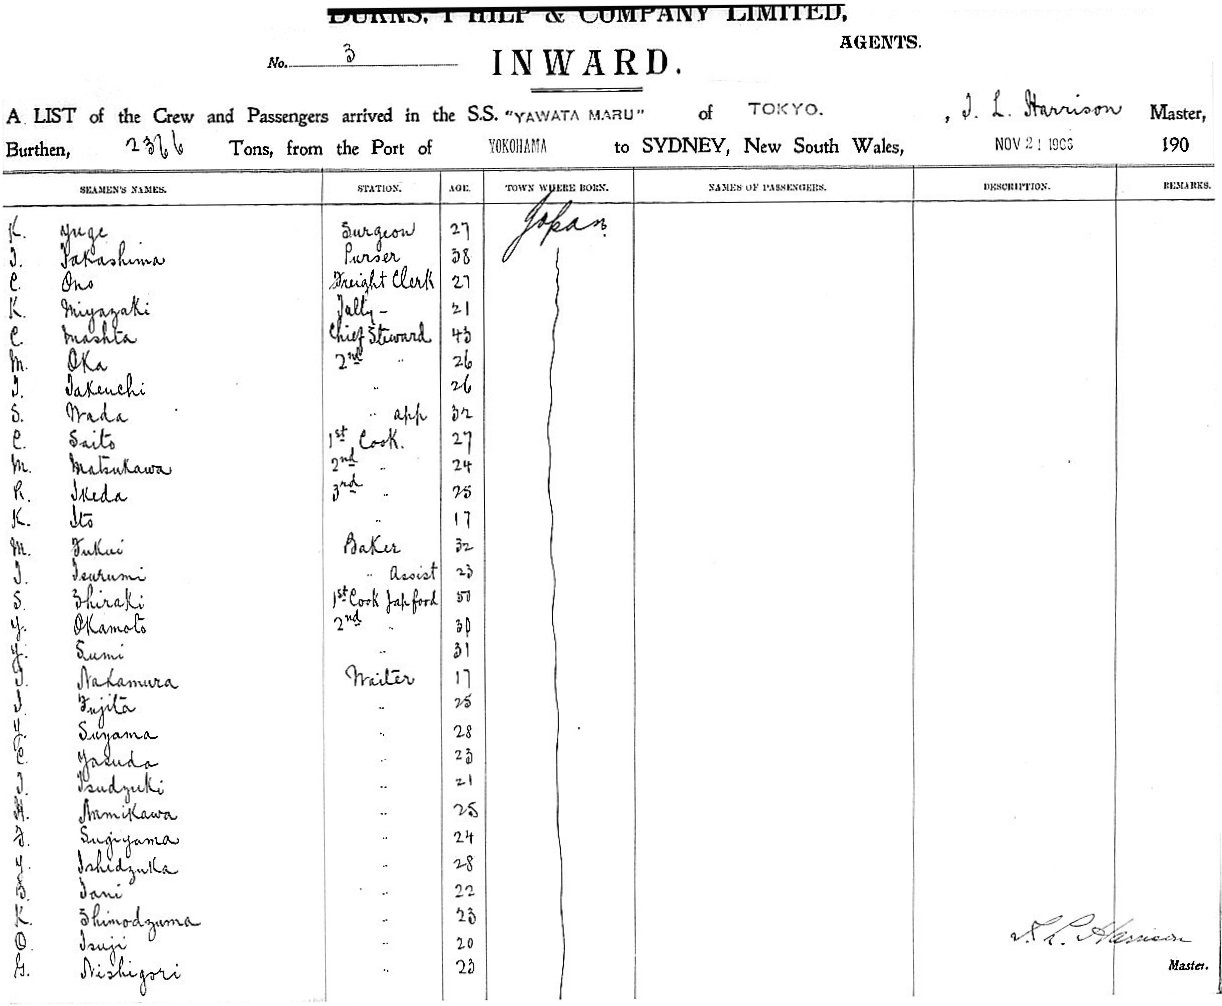 BURNS, PHILP & COMPANY LIMITED,
AGENTS.
No. 3
INWARD.
A LIST of the Crew and Passengers arrived in the S.S. "YAWATA MARU" of TOKYO. , J. L. Harrison Master,
Burthen, 2376 Tons, from the Port of YOKOHAMA to SYDNEY, New South Wales, NOV 21 1906 190
SEAMEN'S NAMES. STATION. AGE. TOWN WHERE BORN. NAMES OF PASSENGERS. DESCRIPTION. REMARKS.
K. Yuge Surgeon 27 Japan
T. Takashima Purser 38
C. Ono Freight Clerk 27
K. Miyazaki Tally - 21
C. Mashta Chief Steward 43
M. Oka 2nd " 26
T. Takeuchi " 26
S. Wada " app 32
C. Saito 1st Cook. 27
M. Matsukawa 2nd " 24
R. Ikeda 3rd " 25
K. Ito " 17
M. Fukui Baker 32
T. Tsurumi " Assist 23
S. Shiraki 1st Cook Jap food 50
Y. Okamoto 2nd " 30
Y. Sumi " 31
T. Nakamura Waiter 17
T. Fujita " 25
Y. Suyama " 28
C. Yasuda " 23
T. Tsudzuki " 21
H. Namikawa " 25
F. Sugiyama " 24
Y. Ishidzuka " 28
B. Tani " 22
K. Shimodzuma " 23
O. Tsuji " 20
G. Nishigori " 23
J. L. Harrison
Master.